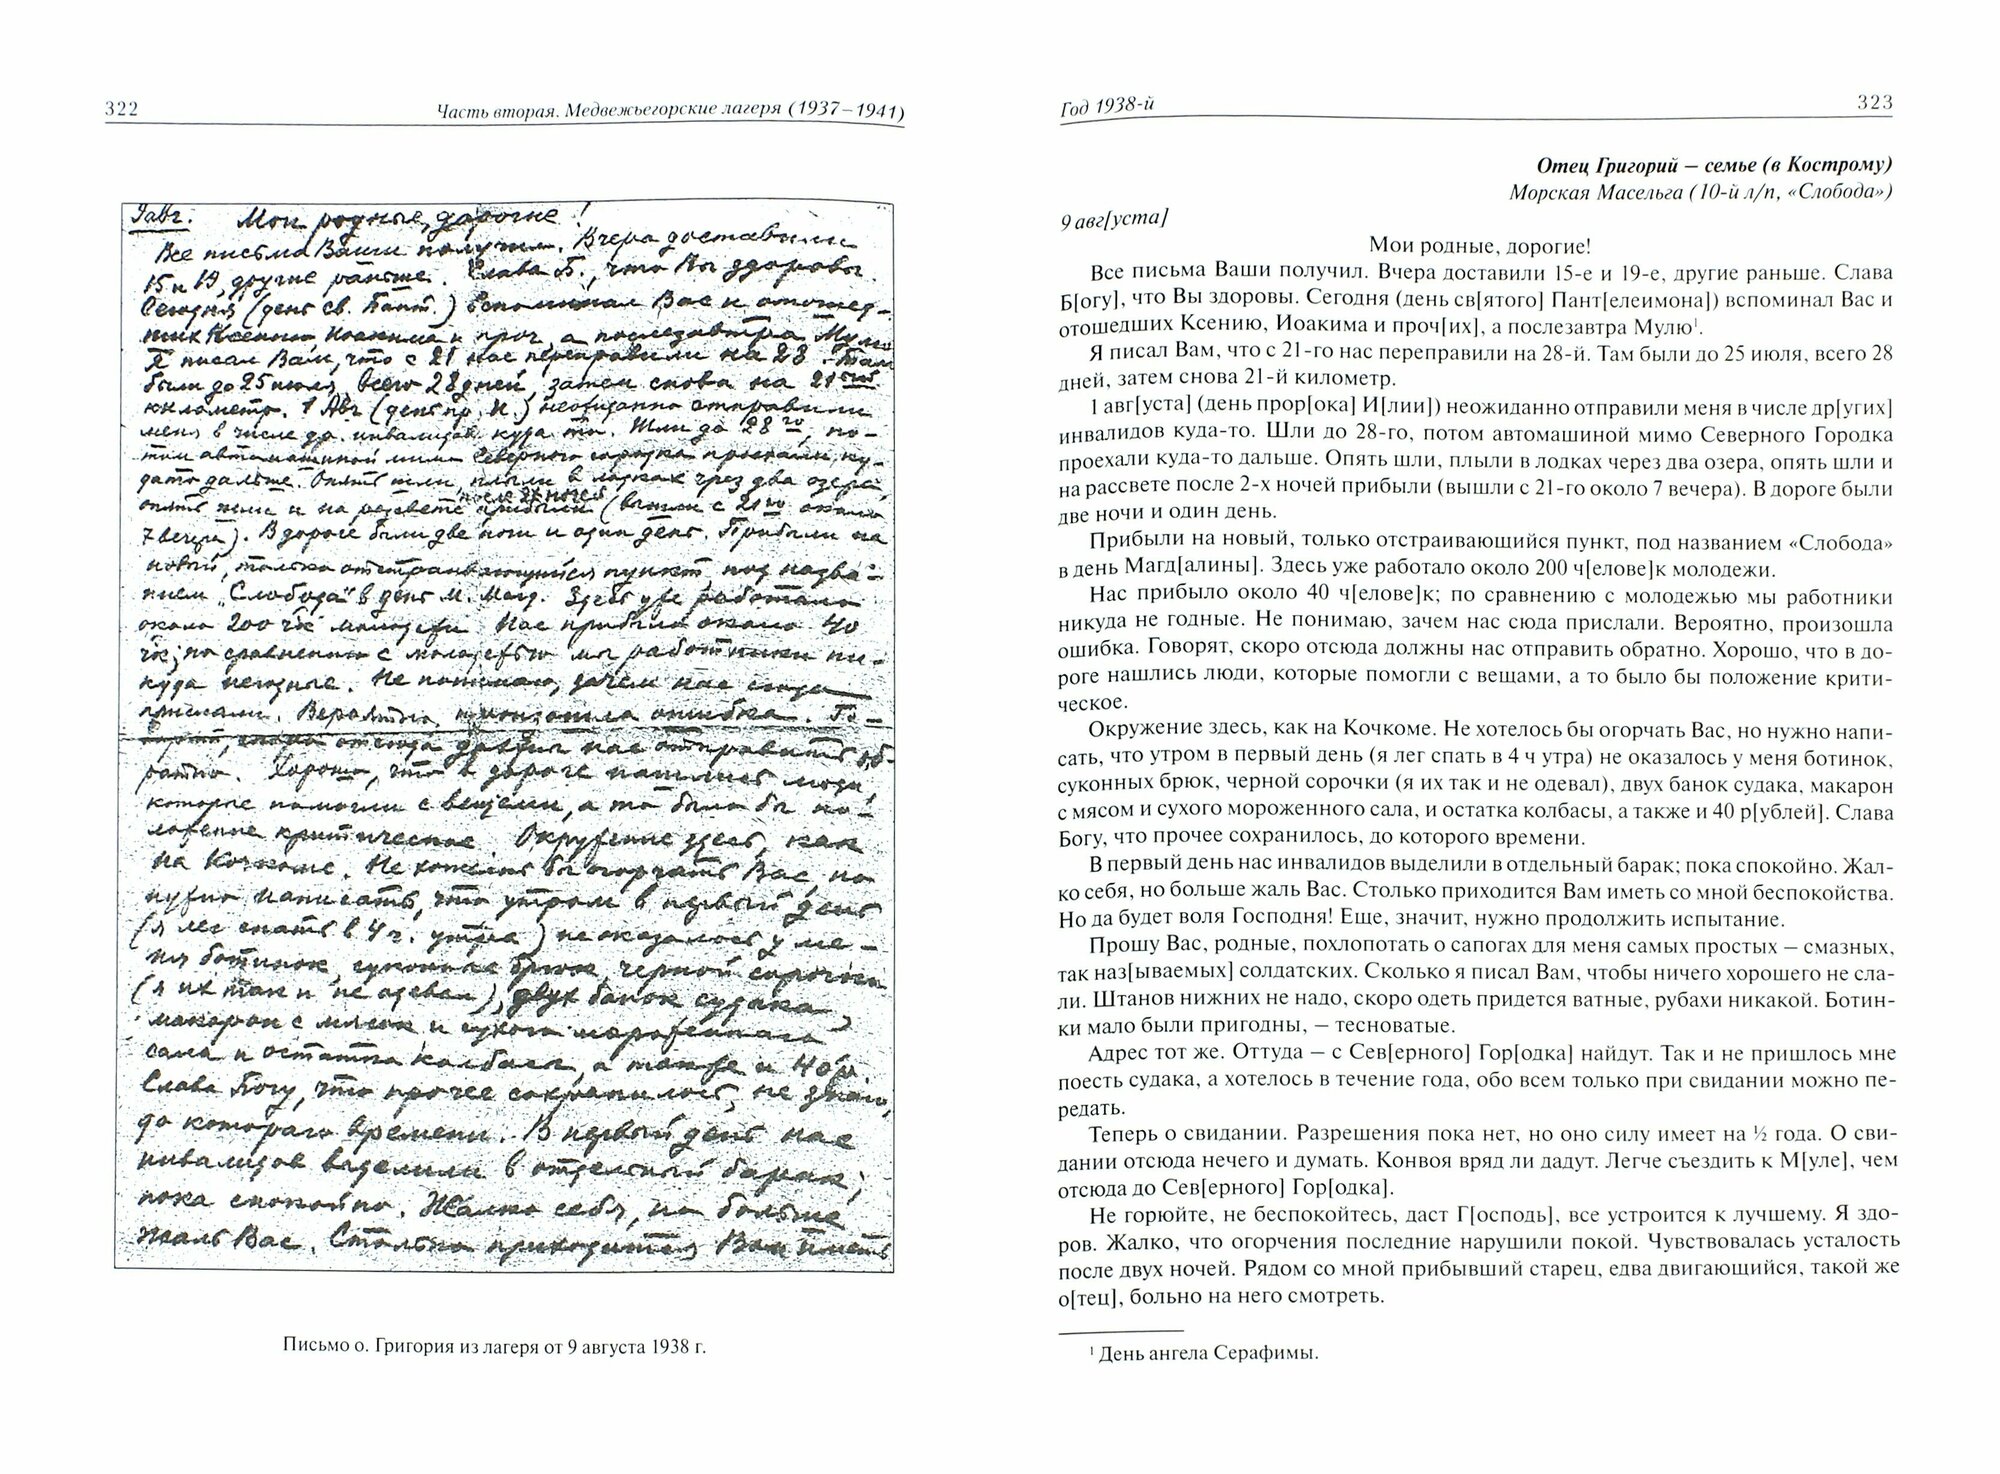 322
Часть вторая. Медвежьегорские лагеря (1937–1941)
9 авг. Мои родные, дорогие!
Все письма Ваши получил. Вчера доставили
15 и 19, другие раньше. Слава Б., что Вы здоровы.
Сегодня (день св. Пант.) вспоминал Вас и отошед-
ших Ксению Иоакима и проч, а послезавтра Мулю
Я писал Вам, что с 21 нас переправили на 28. Там
были до 25 июля, всего 28 дней, затем снова на 21-ый
километр. 1 Авг (день пр. И.) неожиданно отправили
меня в числе др. инвалидов куда то. Шли до 28го, по-
том автомашиной мимо Северного городка проехали ку-
да то дальше. Опять шли, плыли в лодках чрез два озера,
опять шли и на рассвете после 2х ночей прибыли (вышли с 21го около
7 вечера). В дороге были две ночи и один день. Прибыли на
новый, только отстраивающийся пункт, под назва-
нием „Слобода“ в день М. Магд. Здесь уже работало
около 200 чк молодежи Нас прибыло около 40
чк; по сравнению с молодежью мы работники ни-
куда негодные. Не понимаю, зачем нас сюда
прислали. Вероятно, произошла ошибка. Го-
ворят, скоро отсюда должны нас отправить об-
ратно. Хорошо, что в дороге нашлись люди,
которые помогли с вещами, а то было бы по-
ложение критическое Окружение здесь, как
на Кочкоме. Не хотелось бы огорчать Вас, но
нужно написать, что утром в первый день
(я лег спать в 4 ч. утра) не оказалось у ме-
ня ботинок, суконных брюк, черной сорочки
(я их так и не одевал), двух банок судака,
макарон с мясом и сухого мороженного
сала и остатка колбасы, а также и 40 р.
Слава Богу, что прочее сохранилось, не знаю,
до которого времени. В первый день нас
инвалидов выделили в отдельный барак;
пока спокойно. Жалко себя, но больше
жаль Вас. Столько приходится Вам иметь
Письмо о. Григория из лагеря от 9 августа 1938 г.
Год 1938-й
323
Отец Григорий – семье (в Кострому)
Морская Масельга (10-й л/п, «Слобода»)
9 авг[уста]
Мои родные, дорогие!
Все письма Ваши получил. Вчера доставили 15-е и 19-е, другие раньше. Слава
Б[огу], что Вы здоровы. Сегодня (день св[ятого] Пант[елеимона]) вспоминал Вас и
отошедших Ксению, Иоакима и проч[их], а послезавтра Мулю¹.
Я писал Вам, что с 21-го нас переправили на 28-й. Там были до 25 июля, всего 28
дней, затем снова 21-й километр.
1 авг[уста] (день прор[ока] И[лии]) неожиданно отправили меня в числе др[угих]
инвалидов куда-то. Шли до 28-го, потом автомашиной мимо Северного Городка
проехали куда-то дальше. Опять шли, плыли в лодках через два озера, опять шли и
на рассвете после 2-х ночей прибыли (вышли с 21-го около 7 вечера). В дороге были
две ночи и один день.
Прибыли на новый, только отстраивающийся пункт, под названием «Слобода»
в день Магд[алины]. Здесь уже работало около 200 ч[елове]к молодежи.
Нас прибыло около 40 ч[елове]к; по сравнению с молодежью мы работники
никуда не годные. Не понимаю, зачем нас сюда прислали. Вероятно, произошла
ошибка. Говорят, скоро отсюда должны нас отправить обратно. Хорошо, что в до-
роге нашлись люди, которые помогли с вещами, а то было бы положение крити-
ческое.
Окружение здесь, как на Кочкоме. Не хотелось бы огорчать Вас, но нужно напи-
сать, что утром в первый день (я лег спать в 4 ч утра) не оказалось у меня ботинок,
суконных брюк, черной сорочки (я их так и не одевал), двух банок судака, макарон
с мясом и сухого мороженного сала, и остатка колбасы, а также и 40 р[ублей]. Слава
Богу, что прочее сохранилось, до которого времени.
В первый день нас инвалидов выделили в отдельный барак; пока спокойно. Жал-
ко себя, но больше жаль Вас. Столько приходится Вам иметь со мной беспокойства.
Но да будет воля Господня! Еще, значит, нужно продолжить испытание.
Прошу Вас, родные, похлопотать о сапогах для меня самых простых – смазных,
так наз[ываемых] солдатских. Сколько я писал Вам, чтобы ничего хорошего не сла-
ли. Штанов нижних не надо, скоро одеть придется ватные, рубахи никакой. Ботин-
ки мало были пригодны, – тесноватые.
Адрес тот же. Оттуда – с Сев[ерного] Гор[одка] найдут. Так и не пришлось мне
поесть судака, а хотелось в течение года, обо всем только при свидании можно пе-
редать.
Теперь о свидании. Разрешения пока нет, но оно силу имеет на ½ года. О сви-
дании отсюда нечего и думать. Конвоя вряд ли дадут. Легче съездить к М[уле], чем
отсюда до Сев[ерного] Гор[одка].
Не горюйте, не беспокойтесь, даст Г[осподь], все устроится к лучшему. Я здо-
ров. Жалко, что огорчения последние нарушили покой. Чувствовалась усталость
после двух ночей. Рядом со мной прибывший старец, едва двигающийся, такой же
о[тец], больно на него смотреть.
¹ День ангела Серафимы.